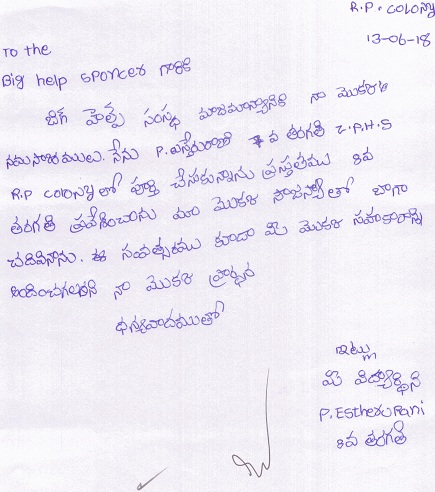 R.P. COLONY
13-06-18
To the
Big help SPONCER గారికి
బిగ హెల్ప్ సంస్థ మాజమాన్యానికి నా మొకళి
నమసారములు. నేను P.ఎస్తేరురాణి 7వ తరగతి Z.P.H.S
R.P COLONY లో పూర్తి చేసుకున్నాను ప్రస్తతము 8వ
తరగతి మా మొకళి తో బాగా
చదివినాను. ఈ సంవత్సరము కూడా మీ మొకళి సహకారాన్ని
అందించగలరని నా మొకళి ప్రార్థన
ధన్యవాదములతో
ఇట్లు
మీ విద్యార్థిని
P. Estheru Rani
8వ తరగతి